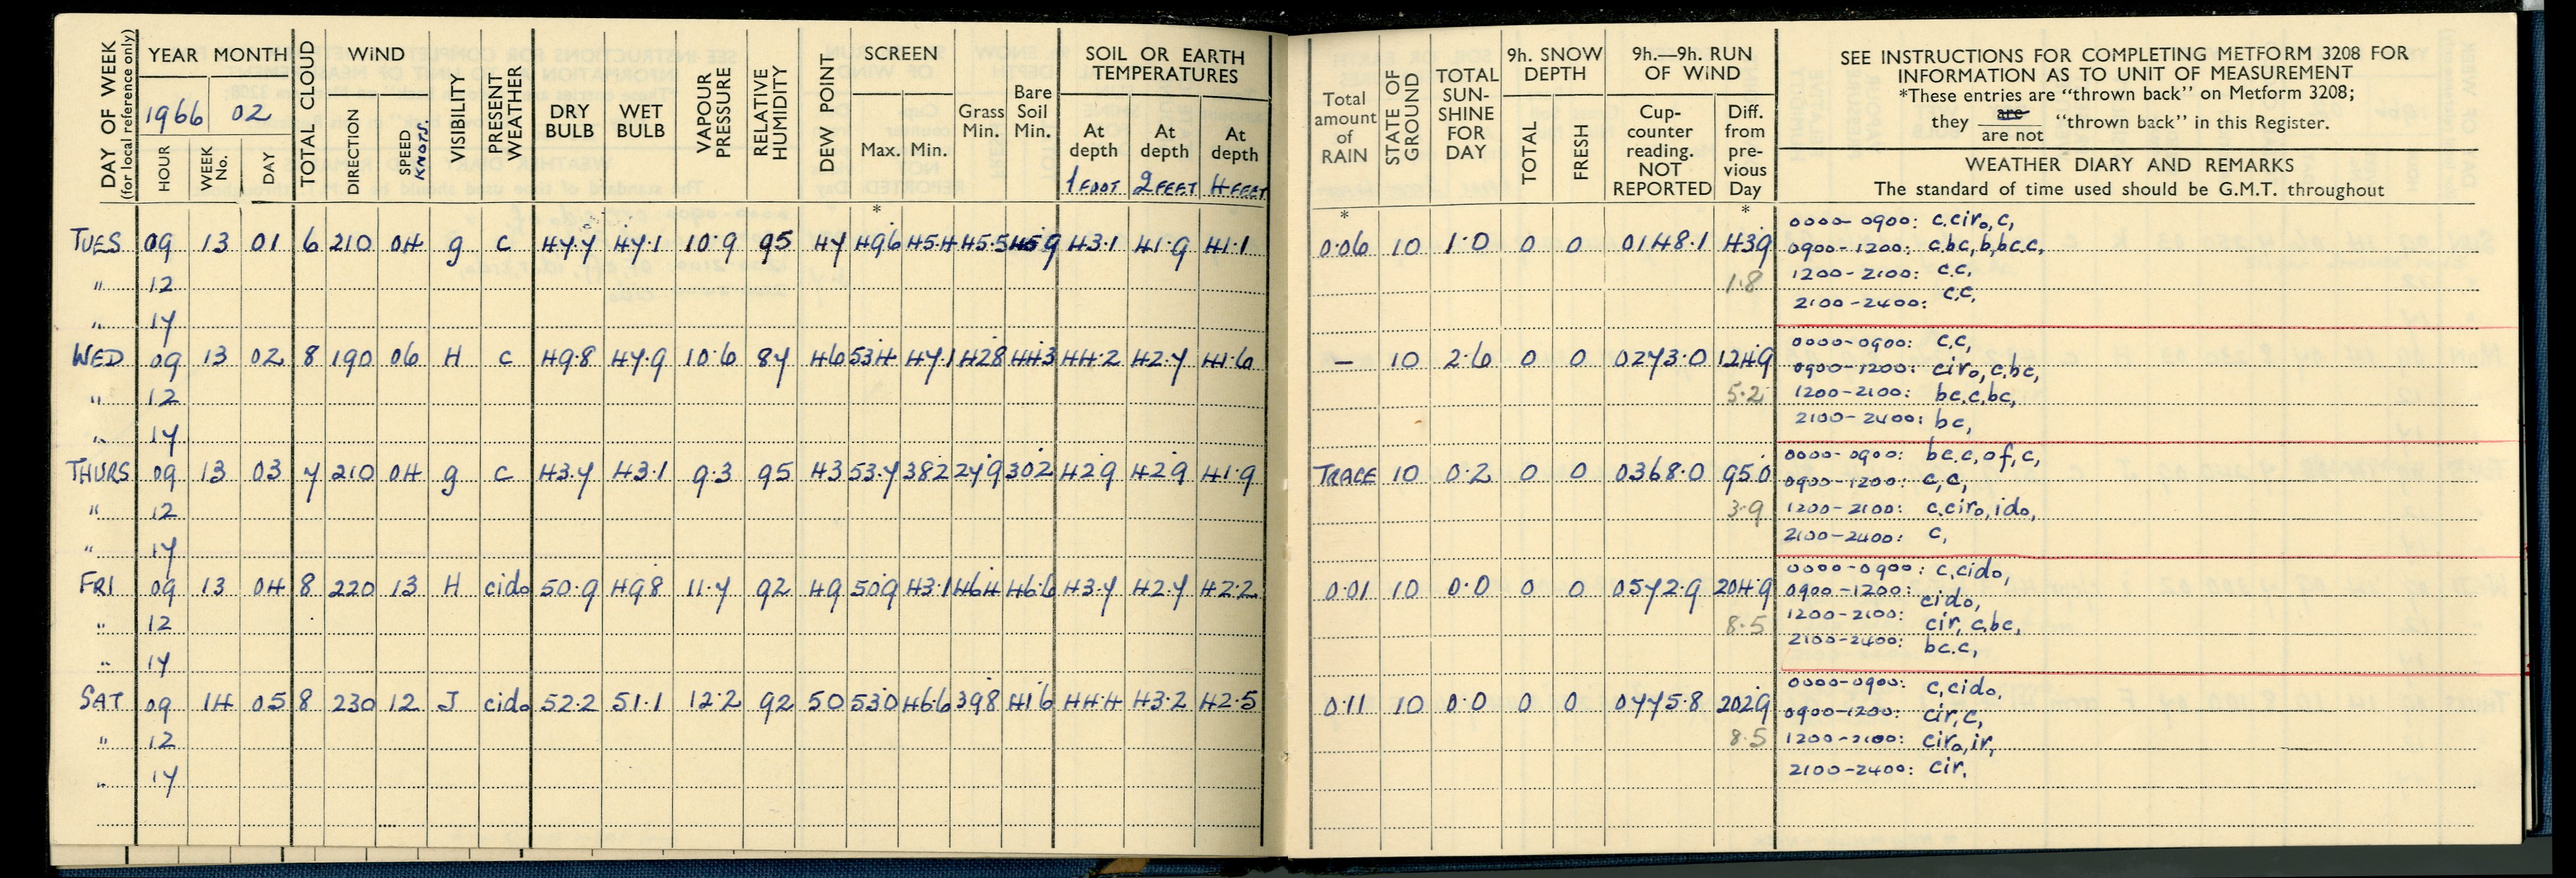 DAY OF WEEK
(for local reference only)
YEAR MONTH
1966 02
HOUR
WEEK No.
DAY
TOTAL CLOUD
WIND
DIRECTION
SPEED KNOTS.
VISIBILITY
PRESENT WEATHER
DRY BULB
WET BULB
VAPOUR PRESSURE
RELATIVE HUMIDITY
DEW POINT
SCREEN
Max. Min.
Grass Min.
Bare Soil Min.
SOIL OR EARTH TEMPERATURES
At depth 1 FOOT
At depth 2 FEET
At depth 4 FEET
Total amount of RAIN
STATE OF GROUND
TOTAL SUN-SHINE FOR DAY
9h. SNOW DEPTH
TOTAL
FRESH
9h.—9h. RUN OF WIND
Cup-counter reading. NOT REPORTED
Diff. from pre-vious Day
SEE INSTRUCTIONS FOR COMPLETING METFORM 3208 FOR
INFORMATION AS TO UNIT OF MEASUREMENT
*These entries are "thrown back" on Metform 3208;
they are / are not "thrown back" in this Register.
WEATHER DIARY AND REMARKS
The standard of time used should be G.M.T. throughout
* * *
TUES 09 13 01 6 210 04 g c 47.7 47.1 10.9 95 47 49.6 45.4 45.5 45.9 43.1 41.9 41.1 0.06 10 1.0 0 0 0148.1 43.9
0000-0900: c.ciro,c,
0900-1200: c.bc,b,bc.c,
" 12 1.8
1200-2100: c.c,
2100-2400: c.c,
" 17
WED 09 13 02 8 190 06 H c 49.8 47.9 10.6 87 46 53.4 47.1 42.8 44.3 44.2 42.7 41.6 — 10 2.6 0 0 0273.0 124.9
0000-0900: c.c,
0900-1200: ciro,c.bc,
" 12 5.2
1200-2100: bc.c.bc,
2100-2400: bc,
" 17
THURS 09 13 03 7 210 04 g c 43.7 43.1 9.3 95 43 53.7 38.2 27.9 30.2 42.9 42.9 41.9 TRACE 10 0.2 0 0 0368.0 95.0
0000-0900: bc.c,of,c,
0900-1200: c,c,
" 12 3.9
1200-2100: c.ciro,ido,
2100-2400: c,
" 17
FRI 09 13 04 8 220 13 H cido 50.9 49.8 11.7 92 49 50.9 43.1 46.4 46.6 43.7 42.7 42.2 0.01 10 0.0 0 0 0572.9 204.9
0000-0900: c,cido,
0900-1200: cido,
" 12 8.5
1200-2100: cir, c.bc,
2100-2400: bc.c,
" 17
SAT 09 14 05 8 230 12 J cido 52.2 51.1 12.2 92 50 53.0 46.6 39.8 41.6 44.4 43.2 42.5 0.11 10 0.0 0 0 0775.8 202.9
0000-0900: c,cido,
0900-1200: cir,c,
" 12 8.5
1200-2100: ciro,ir,
2100-2400: cir,
" 17